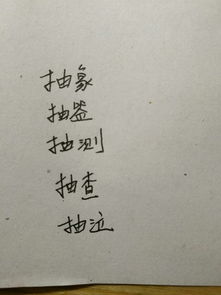 抽象
抽噎
抽测
抽查
抽泣